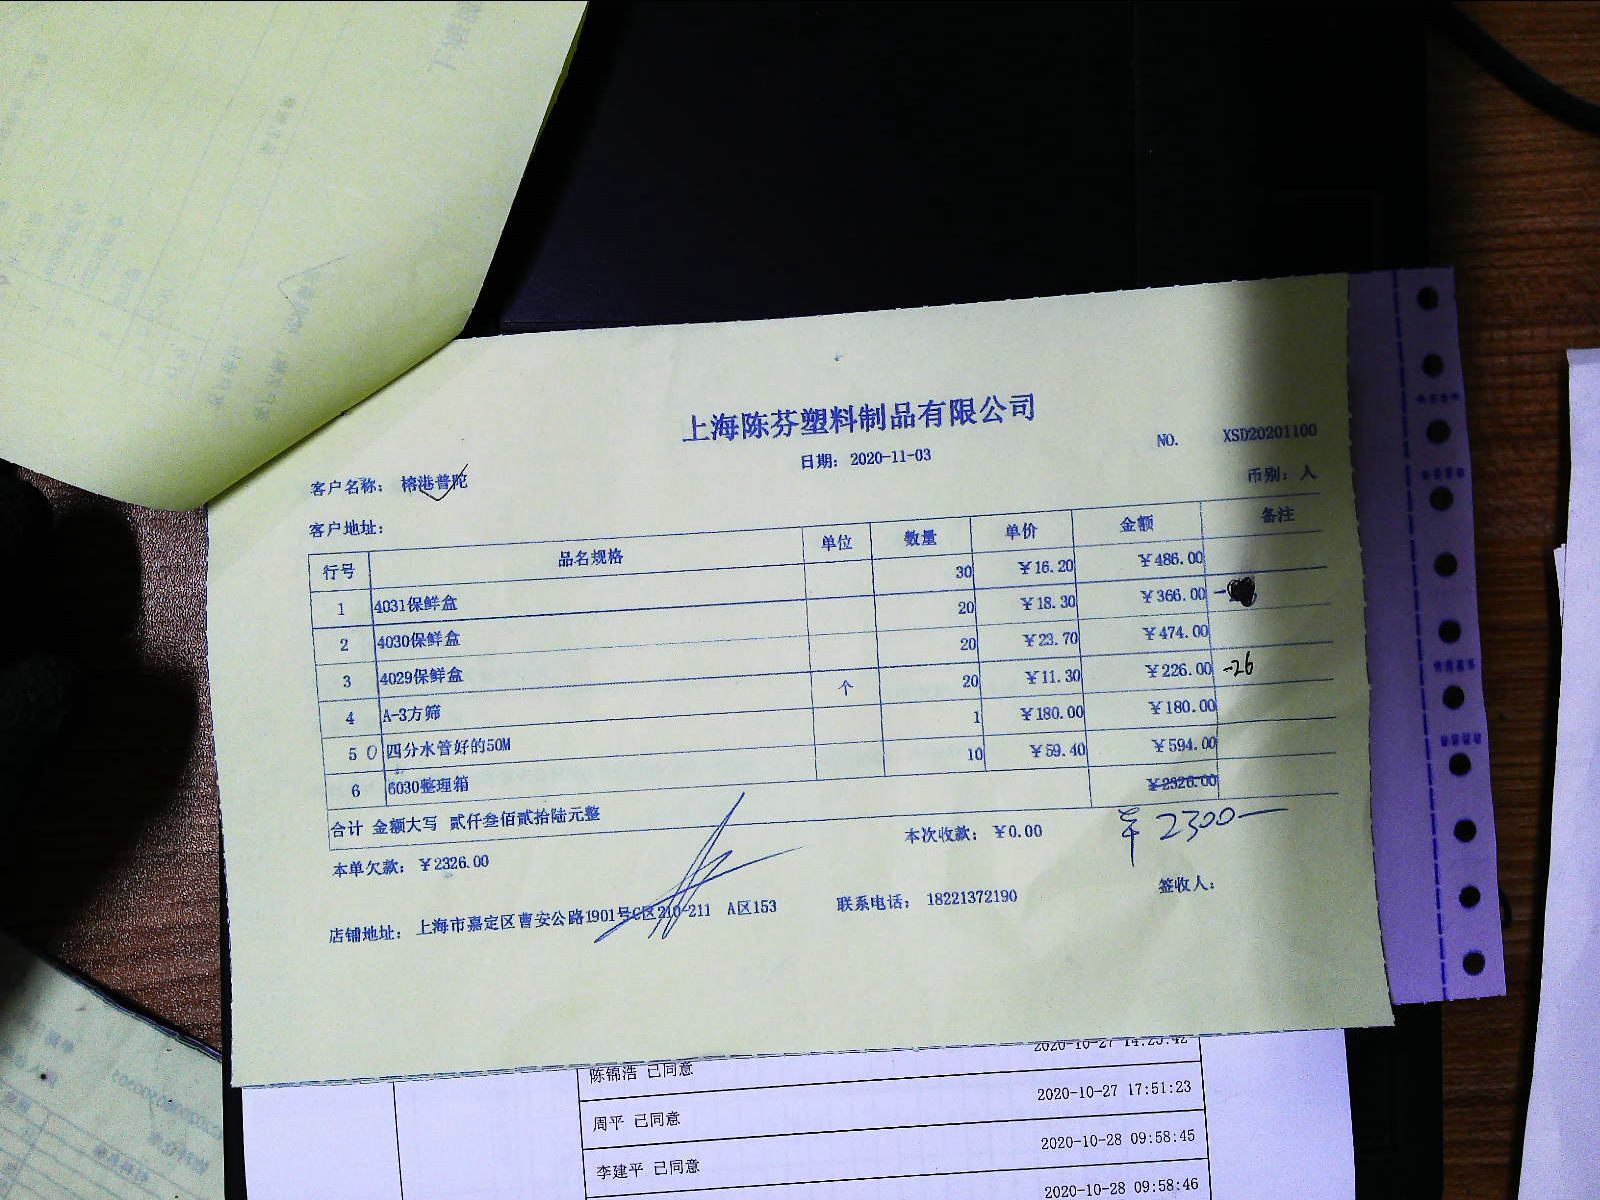 上海陈芬塑料制品有限公司
日期: 2020-11-03
NO. XSD20201100
客户名称: 榕港普陀
币别: 人
客户地址:
行号 品名规格 单位 数量 单价 金额 备注
1 4031保鲜盒 30 ¥16.20 ¥486.00
2 4030保鲜盒 20 ¥18.30 ¥366.00
3 4029保鲜盒 20 ¥23.70 ¥474.00
4 A-3方筛 个 20 ¥11.30 ¥226.00 -26
5 四分水管好的50M 1 ¥180.00 ¥180.00
6 6030整理箱 10 ¥59.40 ¥594.00
合计 金额大写 贰仟叁佰贰拾陆元整 ¥2326.00
本单欠款: ¥2326.00 本次收款: ¥0.00 ¥2300-
店铺地址: 上海市嘉定区曹安公路1901号C区210-211 A区153 联系电话: 18221372190 签收人:
2020-10-27 14:25:42
陈锦浩 已同意
2020-10-27 17:51:23
周平 已同意
2020-10-28 09:58:45
李建平 已同意
2020-10-28 09:58:46